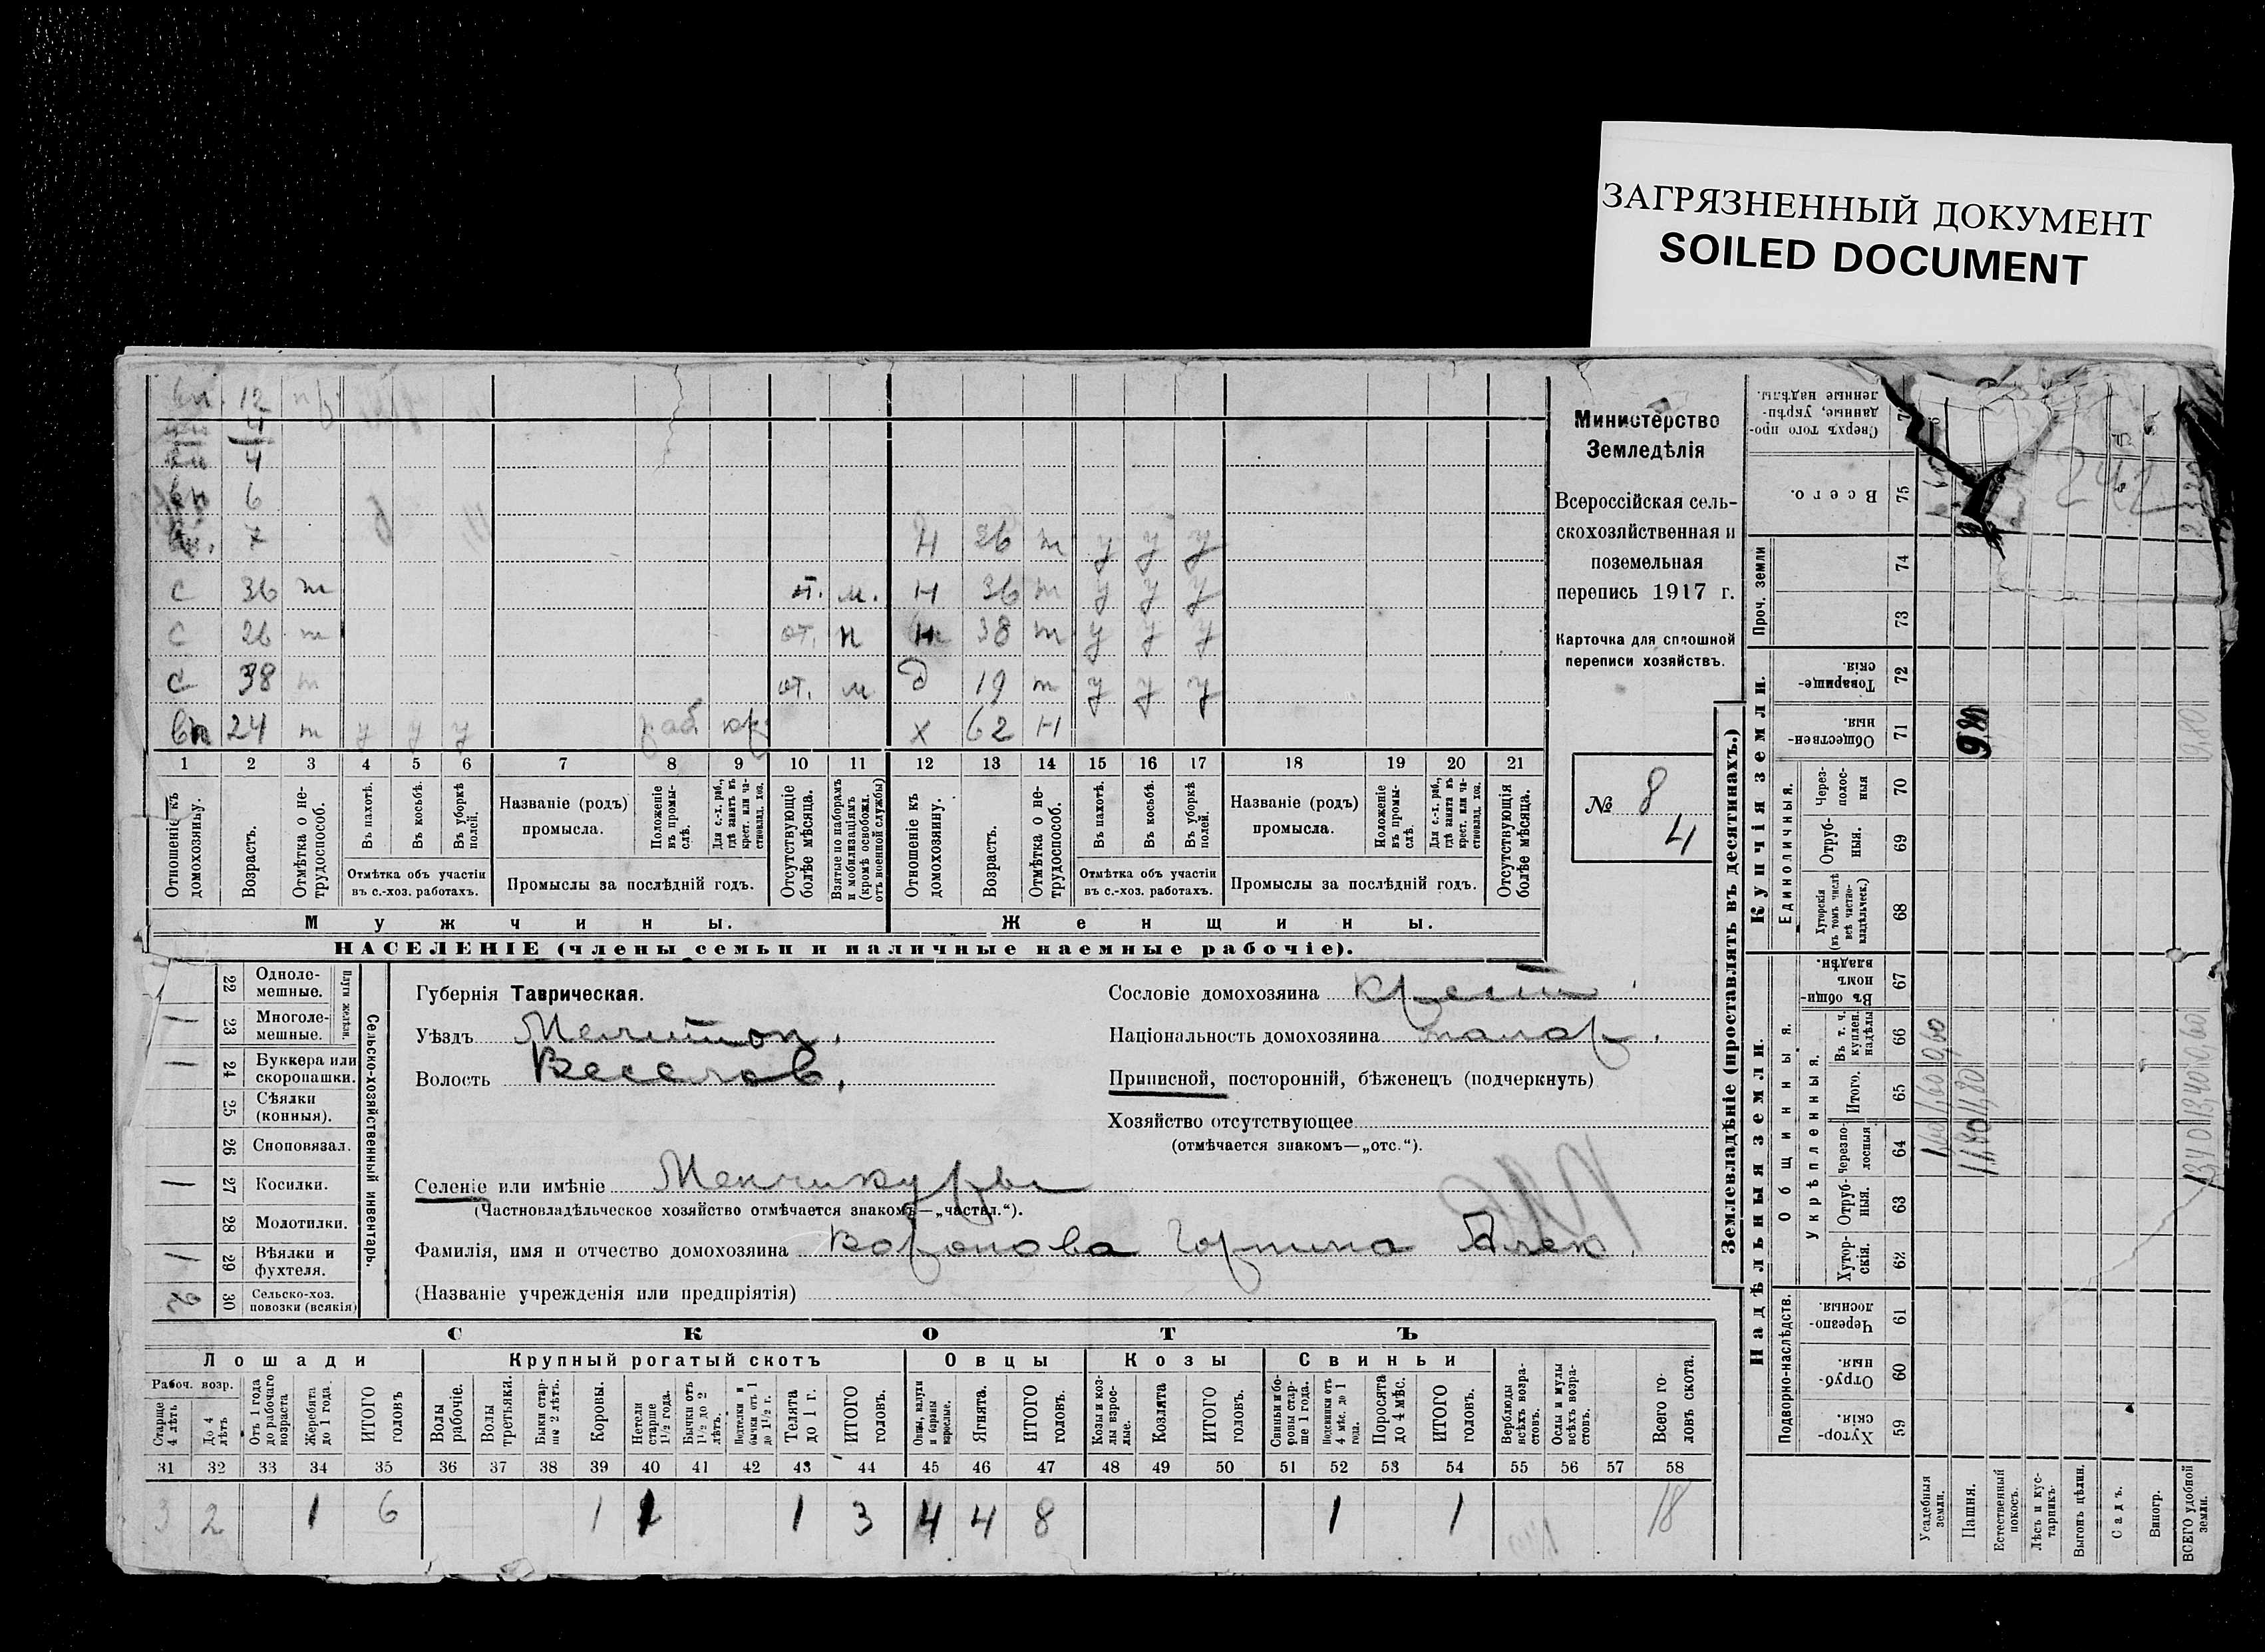 ЗАГРЯЗНЕННЫЙ ДОКУМЕНТ
SOILED DOCUMENT
вн. 12
4
4
вн 6
вн. 7 Н 26 т у у у
с 36 т от. м. Н 36 т у у у
с 26 т от. н 38 т у у у
с 38 т от. м д 19 т у у у
вн 24 т у у у раб кр х 62 Н
1 2 3 4 5 6 7 8 9 10 11 12 13 14 15 16 17 18 19 20 21
Отношеніе къ домохозяину.
Возрастъ.
Отмѣтка о нетрудоспособ.
Въ пахотѣ.
Въ косьбѣ.
Въ уборкѣ полей.
Отмѣтка объ участіи въ с.-хоз. работахъ.
Названіе (родъ) промысла.
Положеніе въ промыслѣ.
Для с.-х. раб., гдѣ занятъ въ крест. или частновлад. хоз.
Промыслы за послѣдній годъ.
Отсутствующіе болѣе мѣсяца.
Взятые по наборамъ и мобилизаціямъ (кромѣ освобожд. отъ военной службы)
Отношеніе къ домохозяину.
Возрастъ.
Отмѣтка о нетрудоспособ.
Въ пахотѣ.
Въ косьбѣ.
Въ уборкѣ полей.
Отмѣтка объ участіи въ с.-хоз. работахъ.
Названіе (родъ) промысла.
Положеніе въ промыслѣ.
Для с.-х. раб., гдѣ занятъ въ крест. или частновлад. хоз.
Промыслы за послѣдній годъ.
Отсутствующія болѣе мѣсяца.
Мужчины. Женщины.
НАСЕЛЕНІЕ (члены семьи и наличные наемные рабочіе).
Министерство
Земледѣлія
Всероссійская сель-
скохозяйственная и
поземельная
перепись 1917 г.
Карточка для сплошной
переписи хозяйствъ.
№ 8
4
22 Одноле-
мешные.
1 23 Многоле-
мешные.
Плуги желѣзн.
1 24 Буккера или
скоропашки.
25 Сѣялки
(конныя).
26 Сноповязал.
1 27 Косилки.
28 Молотилки.
1 29 Вѣялки и
фухтеля.
2 30 Сельско-хоз.
повозки (всякія)
Сельско-хозяйственный инвентарь.
Губернія Таврическая.
Уѣздъ Мелитоп.
Волость Веселов.
Сословіе домохозяина крест.
Національность домохозяина
Приписной, посторонній, бѣженецъ (подчеркнуть)
Хозяйство отсутствующее
(отмѣчается знакомъ—„отс.“).
Селеніе или имѣніе Менчикуры
(Частновладѣльческое хозяйство отмѣчается знакомъ—„частвл.“).
Фамилія, имя и отчество домохозяина Воропова Горпина Алек.
(Названіе учрежденія или предпріятія)
СКОТЪ
Лошади Крупный рогатый скотъ Овцы Козы Свиньи
Рабоч. возр.
Старше 4 лѣтъ
До 4 лѣтъ
Отъ 1 года до рабочаго возраста
Жеребята до 1 года.
ИТОГО головъ
Волы рабочіе.
Волы третьяки.
Быки старше 2 лѣтъ.
Коровы.
Нетели старше 1½ года.
Бычки отъ 1½ до 2 лѣтъ.
Подтелки и бычки отъ 1 до 1½ г.
Телята до 1 г.
ИТОГО головъ.
Овцы, валухи и бараны взрослые.
Ягнята.
ИТОГО головъ.
Козы и козлы взрослые.
Козлята
ИТОГО головъ.
Свиньи и боровы старше 1 года.
Подсвинки отъ 4 мѣс. до 1 года.
Поросята до 4 мѣс.
ИТОГО головъ.
Верблюды всѣхъ возрастовъ.
Ослы и мулы всѣхъ возрастовъ.
Всего головъ скота.
31 32 33 34 35 36 37 38 39 40 41 42 43 44 45 46 47 48 49 50 51 52 53 54 55 56 57 58
3 2 1 6 1 1 1 3 4 4 8 1 1 18
Землевладѣніе (проставлять въ десятинахъ.)
Надѣльныя земли.
Купчія земли.
Проч. земли
Подворно-наслѣдств.
Общинныя.
Укрѣпленныя.
Единоличныя.
Сверхъ того проданные, укрѣпленные надѣлы.
Всего. 75
74
73
Товарищескія. 72
Общественныя. 71
Черезполосныя 70
Отрубныя. 69
Хуторскія (въ томъ числѣ всѣ частновладѣльческ.) 68
Въ общинномъ владѣн. 67
Въ т. ч. куплен. надѣлы 66
Итого. 65
Черезполосныя 64
Отрубныя. 63
Хуторскія. 62
Черезполосныя. 61
Отрубныя. 60
Хуторскія. 59
Усадебныя земли. 1,60 1,60 0,60
Пашня. 11,80 11,80 9,80
Естественный покосъ.
Лѣсъ и кустарникъ.
Выгонъ цѣлин.
Садъ.
Виногр.
ВСЕГО удобной земли. 13,40 13,40 0,60 9,80